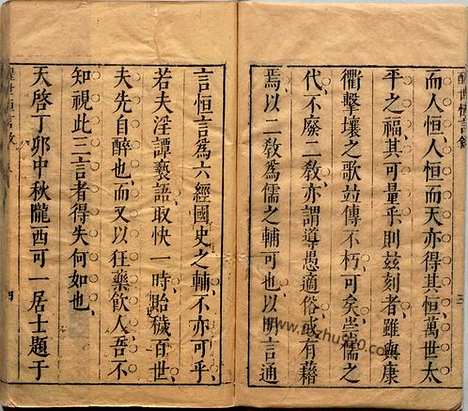 醒世恒言敘
三
而人恒人恒而天亦得其恒萬世太
平之福其可量乎則兹刻者雖與康
衢擊壤之歌竝傳不朽可矣崇儒之
代不廢二教亦謂導愚適俗或有藉
焉以二教爲儒之輔可也以明言通
言恒言爲六經國史之輔不亦可乎
若夫淫譚褻語取快一時貽穢百世
夫先自醉也而又以狂藥飲人吾不
知視此三言者得失何如也
天啓丁卯中秋隴西可一居士題于
醒世恒言敘
四